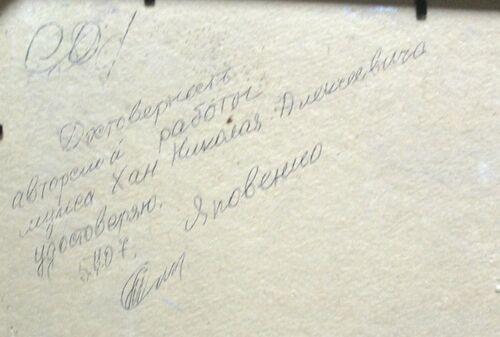 Достоверность
авторской работы
мужа Хан Николая Алексеевича
удостоверяю.
Яковенко